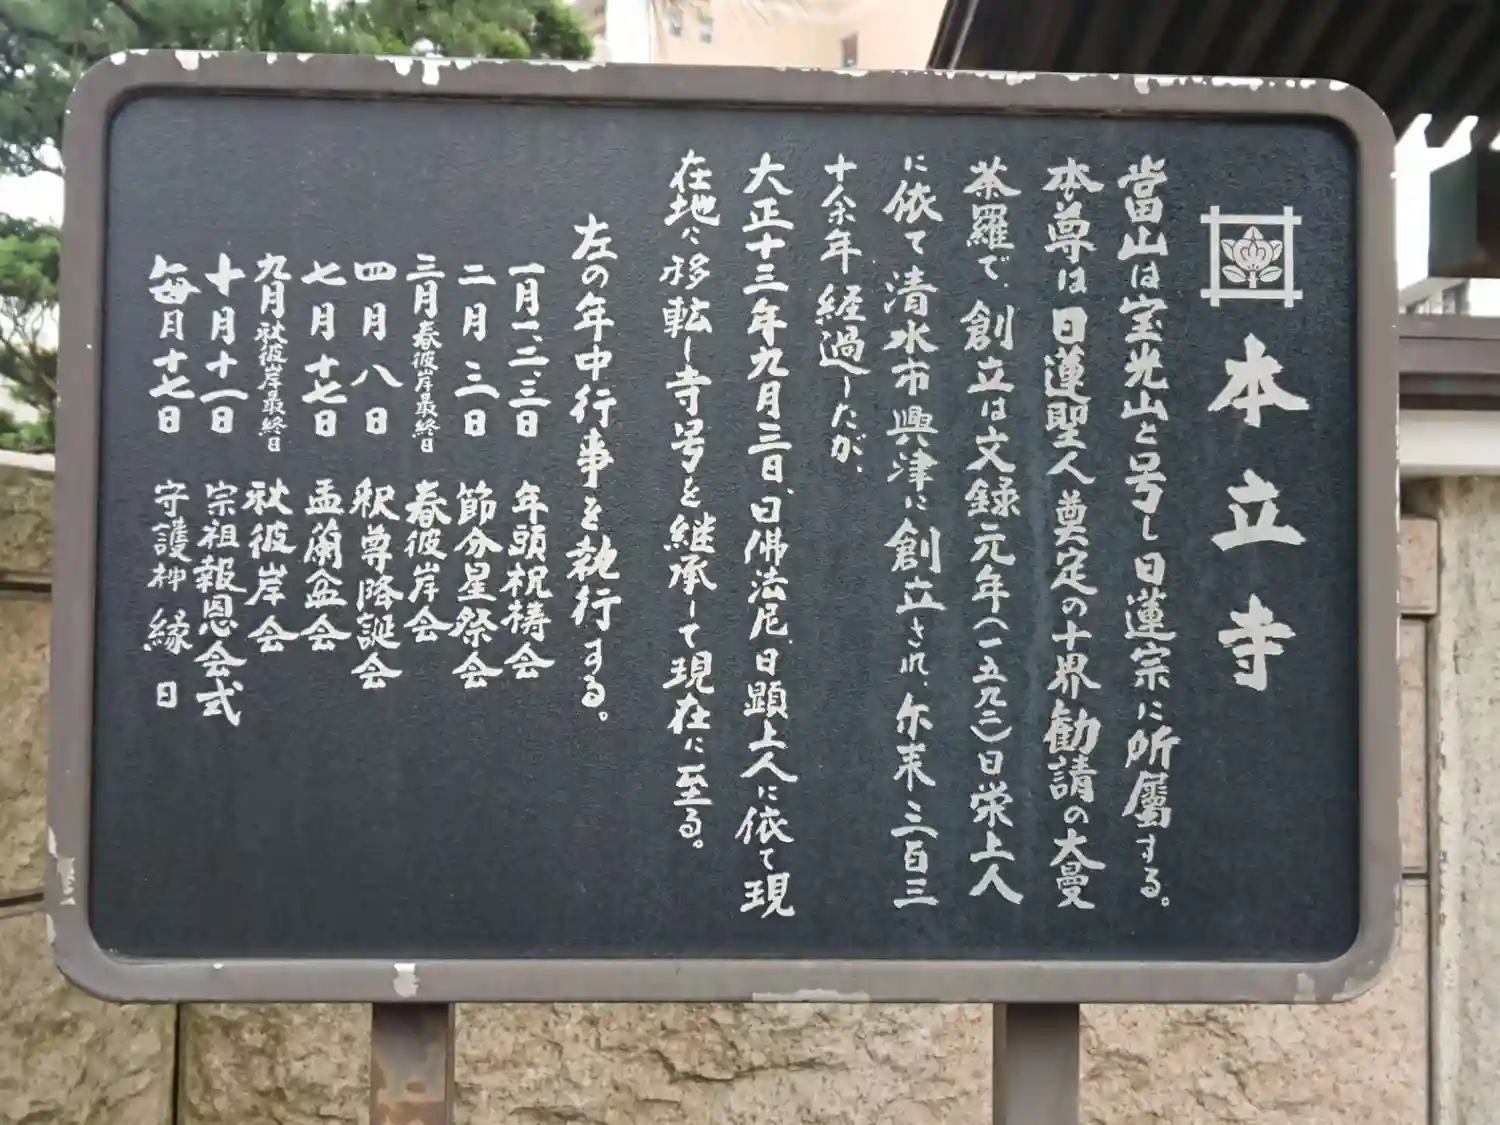 本立寺
當山は宝光山と号し日蓮宗に所屬する。
本尊は日蓮聖人奠定の十界勧請の大曼
荼羅で、創立は文録元年(一五九二)日栄上人
に依て清水市興津に創立され、尓来三百三
十余年経過したが、
大正十三年九月三日、日佛法尼、日顕上人に依て現
在地に移転し寺号を継承して現在に至る。
左の年中行事を執行する。
一月一、二、三日 年頭祝祷会
二月三日 節分星祭会
三月春彼岸最終日 春彼岸会
四月八日 釈尊降誕会
七月十七日 盂蘭盆会
九月秋彼岸最終日 秋彼岸会
十月十一日 宗祖報恩会式
毎月十七日 守護神縁日